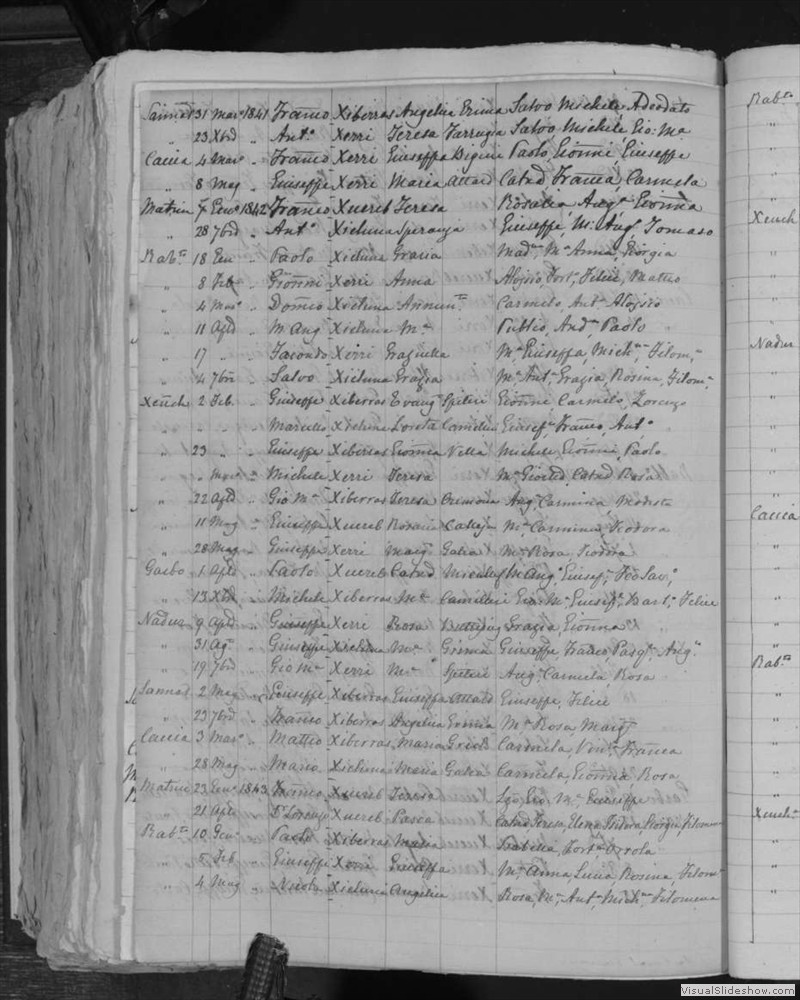 Sannat 31 Mar. 1841 Franco Xiberras Angelica Erima Salvo Michele Adeodato
" 23 Xbr " Ant.o Xerri Teresa Farrugia Salvo Michele Gio: Ma
Caccia 4 Mar. " Franco Xerri Giuseppa Paolo, Gionni Giuseppe
" 8 Mag " Giuseppe Xerri Maria Attard Catad Franca, Carmela
Matrice 7 Gen. 1842 Franco Xuereb Teresa Rosalia Ang.a Gionna
" 28 7br " Ant.o Xicluna Speranza Giuseppe, M. Ang. Tomaso
Rab.to 18 Gen " Paolo Xicluna Grazia Mad.a M.a Anna, Giorgia
" 8 Feb. " Gionni Xerri Anna Aloisio, Fort. Felice, Matteo
" 4 Mar. " Domco Xicluna Annun.ta Carmelo, Ant. Aloisio
" 11 Aple " M. Ang. Xicluna M.a Publio, And. Paolo
" 17 " " Xerri Graziulla M.a Giuseppa, Mich. Filom.
" 4 7bri " Salvo Xicluna Grazia M.a Ant. Grazia, Rosina, Filom.
Xeuch 2 Feb. " Giuseppe Xiberras Evang. Spiteri Gionni, Carmelo, Lorenzo
" " " Marcello Xicluna Loreta Camilleri Giusep. Franco, Ant.o
" 23 " " Giuseppe Xiberras Gionna Vella Michele, Gionni, Paolo
" " " Michele Xerri Teresa M.a Catad Rosa
" 22 Aple " Gio M.a Xiberras Teresa Cremona Ang. Carmina, Modesta
" 11 Mag " Giuseppe Xuereb Rosaria M.a Carmina, Teodora
" 28 Mag " Giuseppe Xerri Marg. Galea M.a Rosa, Teodora
Garbo 1 Aple " Paolo Xuereb Catad Micallef M. Ang. Giusep.
" 13 Xbr " Michele Xiberras M.a Camilleri Gio: M.a Giusep. Bart. Felice
Nadur 9 Aple " Giuseppe Xerri Rosa Buttigieg Grazia, Gionna
" 31 Ag. " Giuseppe Xicluna M.a Grima Giuseppe, Franco, Pasq. Ang.
" 19 7br " Gio M.a Xerri M.a Spiteri Ang. Carmela, Rosa
Sannat 2 Mag " Giuseppe Xiberras Giuseppa Attard Giuseppe, Felice
" 23 7br " Franco Xiberras Angelica M.a Rosa, Marg.
Caccia 3 Mar. " Matteo Xiberras Maria Carmela, Vin. Franca
" 28 Mag " Mario Xicluna Maria Galea Carmela, Gionna Rosa
Matrice 23 Gen. 1843 Franco Xuereb Teresa Gio: M.a Giuseppe
" 21 Aple " Lorenzo Xuereb Pasca Catad Teresa, Elena Giorgia, Filomena
Rab.to 10 Gen. " Paolo Xiberras Maria Isabella, Fort. Orsola
" 5 Feb " Giuseppe Xerri Giuseppa M.a Anna, Lucia Rosina, Filom.
" 4 Mag " Nicola Xicluna Angelica Rosa, M.a Ant. Mich. Filomena
Rab.to
Xeuch
Nadur
Caccia
Rab.to
Xeuch.
VisualSlideshow.com